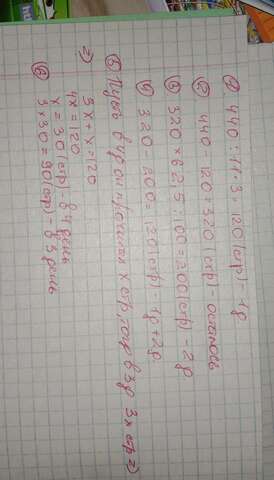 ① 440 : 11 · 3 = 120 (стр) - 1д
② 440 - 120 = 320 (стр) осталось
③ 320 × 62,5 : 100 = 200 (стр) - 2д
④ 320 - 200 = 120 (стр) - 1д + 2д
⑤ Пусть в 4д он прочитал x стр, тогда в 3д 3x стр ⇒
⇒
3x + x = 120
4x = 120
x = 30 (стр) - в 4 день
⑥ 3 × 30 = 90 (стр) - в 3 день